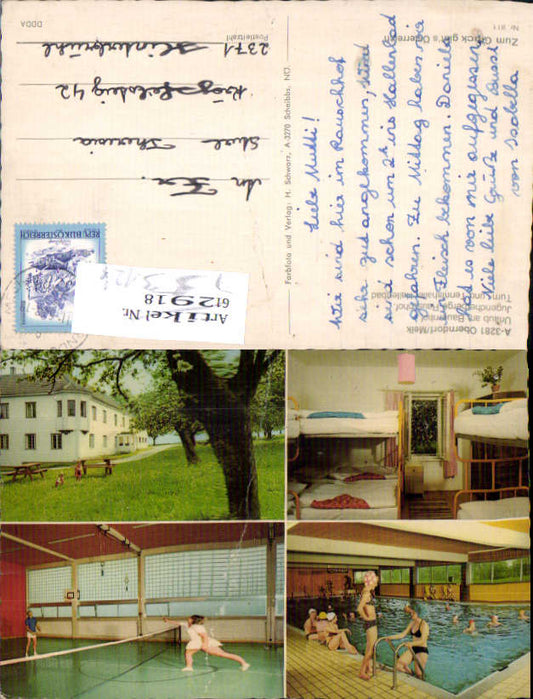 A-3281 Oberndorf/Melk
Urlaub am Bauernhof
Jugendherberge "Rauschhof"
Turn- und Tennishalle, Hallenbad
Liebe Mutti!
Wir sind hier im Rauschhof
sehr gut angekommen, und
sind schon um 2h ins Hallenbad
gefahren. Zu Mittag haben wir
ein Fleisch bekommen. Daniela
hat es von mir aufgegessen.
Viele liebe Grüße und Bussi
von Isabella
Zum Glück gibt's Österreich
Nr. 911
Farbfoto und Verlag: H. Schwarz, A-3270 Scheibbs, NÖ.
REPUBLIK ÖSTERREICH
Artikel Nr.
612918
An Fr.
Theresia
42
2371 Hinterbrühl
Postleitzahl
DDDA